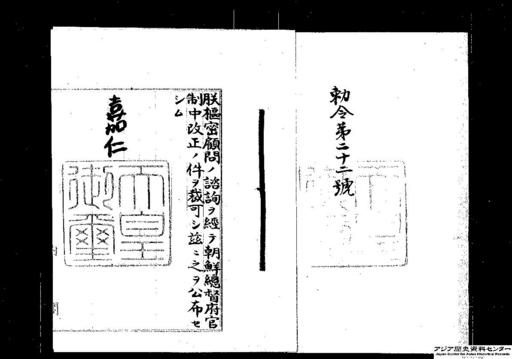 勅令第二十二號
朕樞密顧問ノ諮詢ヲ經テ朝鮮總督府官
制中改正ノ件ヲ裁可シ茲ニ之ヲ公布セ
シム
嘉仁
天皇
御璽
内
閣
アジア歴史資料センター
Japan Center for Asian Historical Records